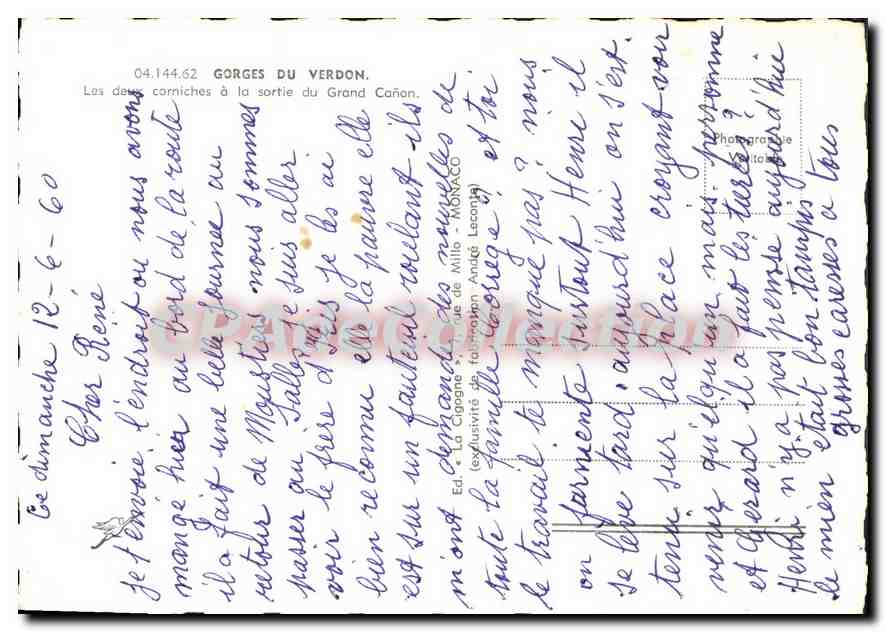 04.144.62 GORGES DU VERDON.
Les deux corniches à la sortie du Grand Cañon.
Photographie
Véritable
Ed. « La Cigogne », rue de Millo - MONACO
(exclusivité de fabrication André Leconte)
CPADeCollection
Ce dimanche 12-6-60
Cher Réné
je t'envoie l'endroit ou nous avons
mangé hier au bord de la route
il a fait une belle journée au
retour de Moustiers nous sommes
passer au Sallot je suis aller
voir le frère d' je les ai
bien reconnu elle la pauvre elle
est sur un fauteuil roulant ils
m'ont demandé des nouvelles de
toute la famille Corrège? et toi
le travail te manque pas? nous
on farniente surtout Henri il
se lève tard. aujourd'hui on s'est
tenu sur la place croyant voir
venir quelqu'un mais personne
et Gérard il a fait les turcs?
Henri n'y a pas pensé aujourd'hui
le mien était bon tampis
grosses caresses a tous